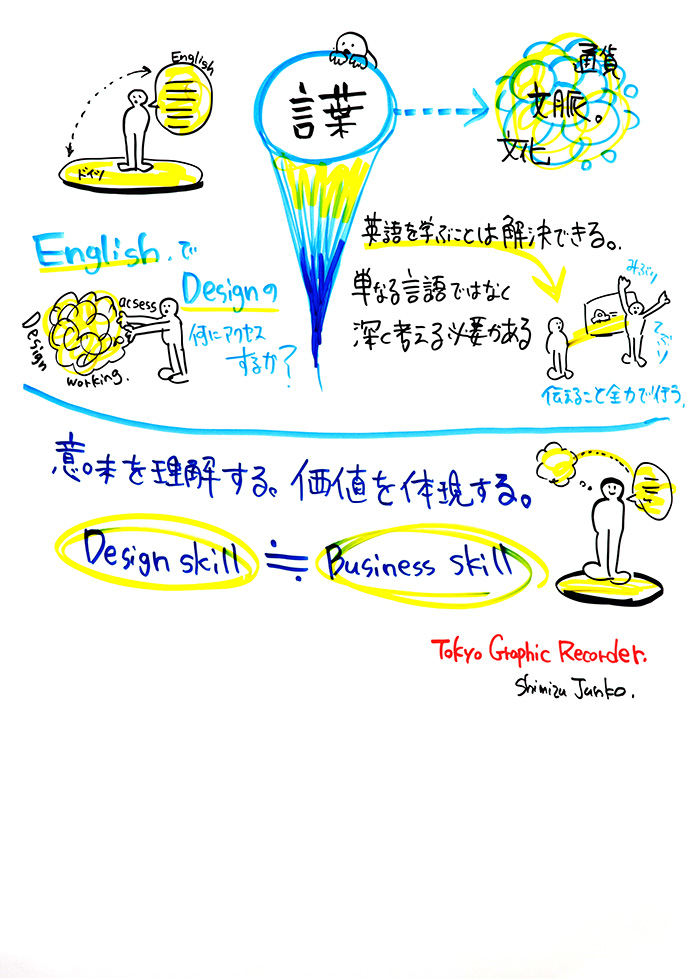 English
ドイツ
言葉
通貨
文脈。
文化
English.で
Designの
何にアクセス
するか?
acsess
Design
working.
英語を学ぶことは解決できる。
単なる言語ではなく
深く考える必要がある
みぶり
てぶり
伝えること全力で行う。
意味を理解する。価値を体現する。
Design skill ≒ Business skill
Tokyo Graphic Recorder.
Shimizu Junko.